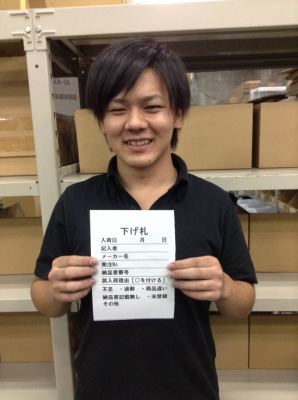 下げ札
入荷日　　月　　日
記入者
メーカー名
発注No
納品書番号
誤入荷理由【○を付ける】
不足 ・過剰 ・商品違い
納品書記載無し ・未登録
その他